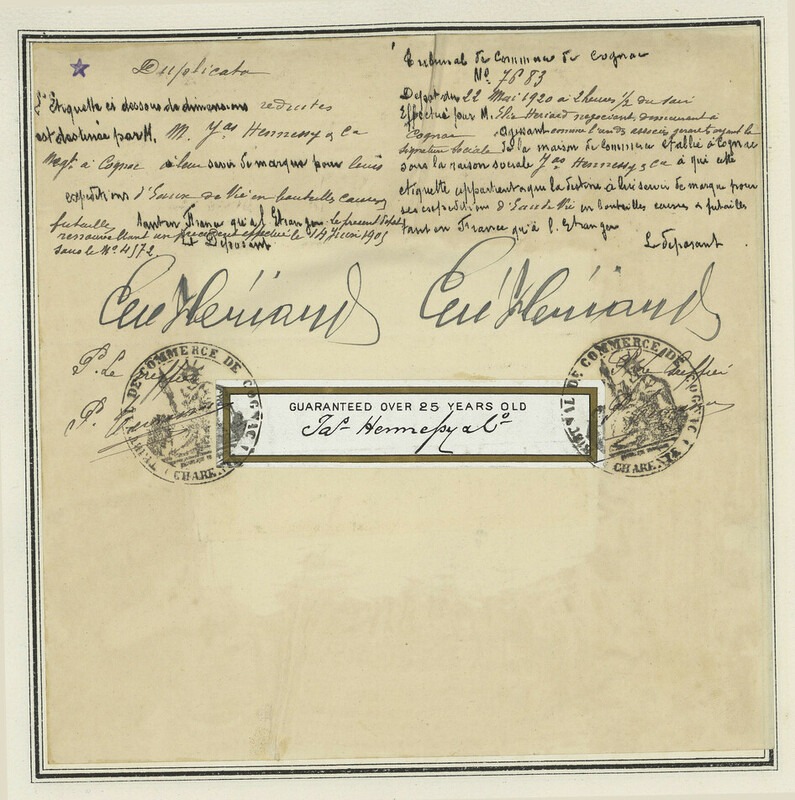 Duplicata
L'Etiquette ci dessous de dimensions reduites
est destinée par M. M. Jas Hennessy & Co
Negts à Cognac à leur servir de marque pour leurs
expéditions d'Eaux de Vie en bouteilles caisses
futailles tant en France qu'à l'Etranger le présent dépôt
renouvellant un précédent effectué le 14 Juin 1905
sous le No 4572
Le Déposant
Tribunal de Commerce de Cognac
No 7683
Dépôt du 22 Mai 1920 à 2 heures 1/2 du soir
Effectué par M. Elie Heriard négociant demeurant à
Cognac Agissant comme l'un des associés gérants ayant la
signature sociale de la maison de commerce établie à Cognac
sous la raison sociale Jas Hennessy & Co à qui cette
étiquette appartient et qui la destine à lui servir de marque pour
ses expéditions d'Eau de Vie en bouteilles caisses & futailles
tant en France qu'à l'Etranger
Le déposant
Elie Heriard
Elie Heriard
P. Le Greffier
P. Le Greffier
TRIBUNAL DE COMMERCE DE COGNAC
(CHARENTE)
GUARANTEED OVER 25 YEARS OLD
Jas Hennessy & Co
TRIBUNAL DE COMMERCE DE COGNAC
(CHARENTE)